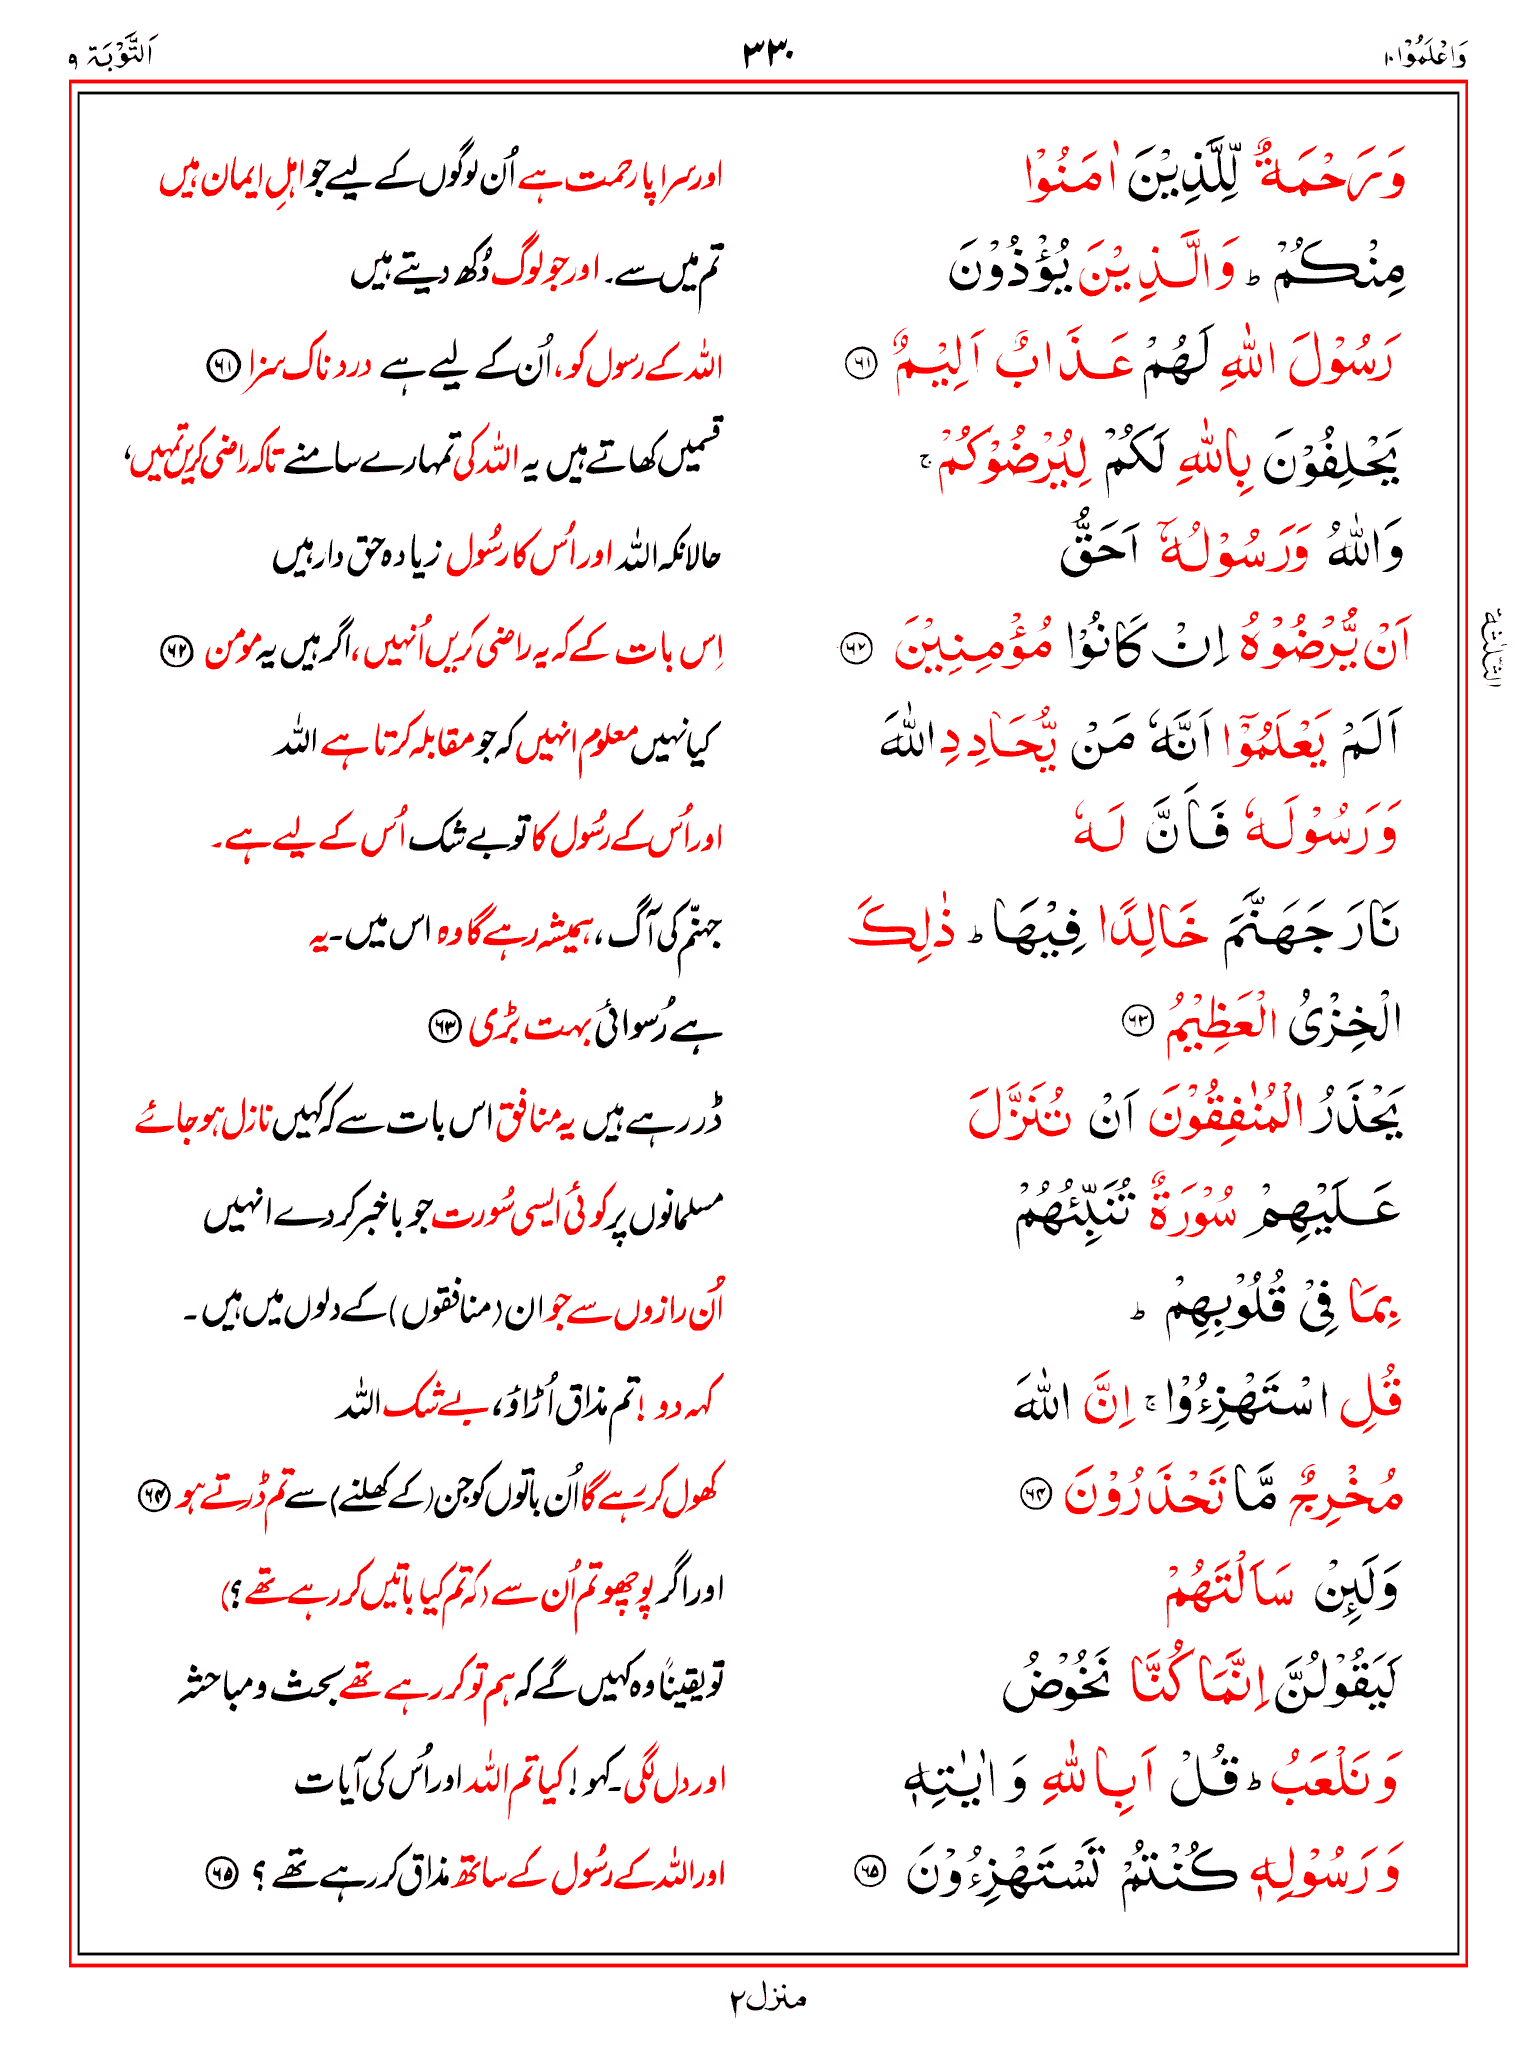 وَاعْلَمُوْا۱۰ ۳۳۰ اَلتَّوْبَۃ ۹
وَرَحْمَةٌ لِّلَّذِيْنَ اٰمَنُوْا اور سراپا رحمت ہے اُن لوگوں کے لیے جو اہلِ ایمان ہیں
مِنْكُمْ ؕ وَالَّذِيْنَ يُؤْذُوْنَ تم میں سے۔ اور جو لوگ دُکھ دیتے ہیں
رَسُوْلَ اللّٰهِ لَهُمْ عَذَابٌ اَلِيْمٌ ۶۱ اللہ کے رسول کو، اُن کے لیے ہے درد ناک سزا ۶۱
يَحْلِفُوْنَ بِاللّٰهِ لَكُمْ لِيُرْضُوْكُمْ ۚ قسمیں کھاتے ہیں یہ اللہ کی تمہارے سامنے تاکہ راضی کریں تمہیں،
وَاللّٰهُ وَرَسُوْلُهٗۤ اَحَقُّ حالانکہ اللہ اور اُس کا رسُول زیادہ حق دار ہیں
اَنْ يُّرْضُوْهُ اِنْ كَانُوْا مُؤْمِنِيْنَ ۶۲ اِس بات کے کہ یہ راضی کریں اُنہیں، اگر ہیں یہ مومن ۶۲
الثلٰثة
اَلَمْ يَعْلَمُوْۤا اَنَّهٗ مَنْ يُّحَادِدِ اللّٰهَ کیا نہیں معلوم انہیں کہ جو مقابلہ کرتا ہے اللہ
وَرَسُوْلَهٗ فَاَنَّ لَهٗ اور اُس کے رسُول کا تو بے شک اُس کے لیے ہے۔
نَارَ جَهَنَّمَ خَالِدًا فِيْهَا ؕ ذٰلِكَ جہنّم کی آگ، ہمیشہ رہے گا وہ اس میں۔ یہ
الْخِزْىُ الْعَظِيْمُ ۶۳ ہے رُسوائی بہت بڑی ۶۳
يَحْذَرُ الْمُنٰفِقُوْنَ اَنْ تُنَزَّلَ ڈر رہے ہیں یہ منافق اس بات سے کہ کہیں نازل ہو جائے
عَلَيْهِمْ سُوْرَةٌ تُنَبِّئُهُمْ مسلمانوں پر کوئی ایسی سُورت جو باخبر کر دے انہیں
بِمَا فِىْ قُلُوْبِهِمْ ؕ اُن رازوں سے جو ان (منافقوں) کے دلوں میں ہیں۔
قُلِ اسْتَهْزِءُوْا ۚ اِنَّ اللّٰهَ کہہ دو! تم مذاق اُڑاؤ، بے شک اللہ
مُخْرِجٌ مَّا تَحْذَرُوْنَ ۶۴ کھول کر رہے گا اُن باتوں کو جن (کے کھلنے) سے تم ڈرتے ہو ۶۴
وَلَئِنْ سَاَلْتَهُمْ اور اگر پوچھو تم اُن سے (کہ تم کیا باتیں کر رہے تھے؟)
لَيَقُوْلُنَّ اِنَّمَا كُنَّا نَخُوْضُ تو یقیناً وہ کہیں گے کہ ہم تو کر رہے تھے بحث و مباحثہ
وَنَلْعَبُ ؕ قُلْ اَبِاللّٰهِ وَاٰيٰتِهٖ اور دل لگی۔ کہو! کیا تم اللہ اور اُس کی آیات
وَرَسُوْلِهٖ كُنْتُمْ تَسْتَهْزِءُوْنَ ۶۵ اور اللہ کے رسُول کے ساتھ مذاق کر رہے تھے؟ ۶۵
منزل۲